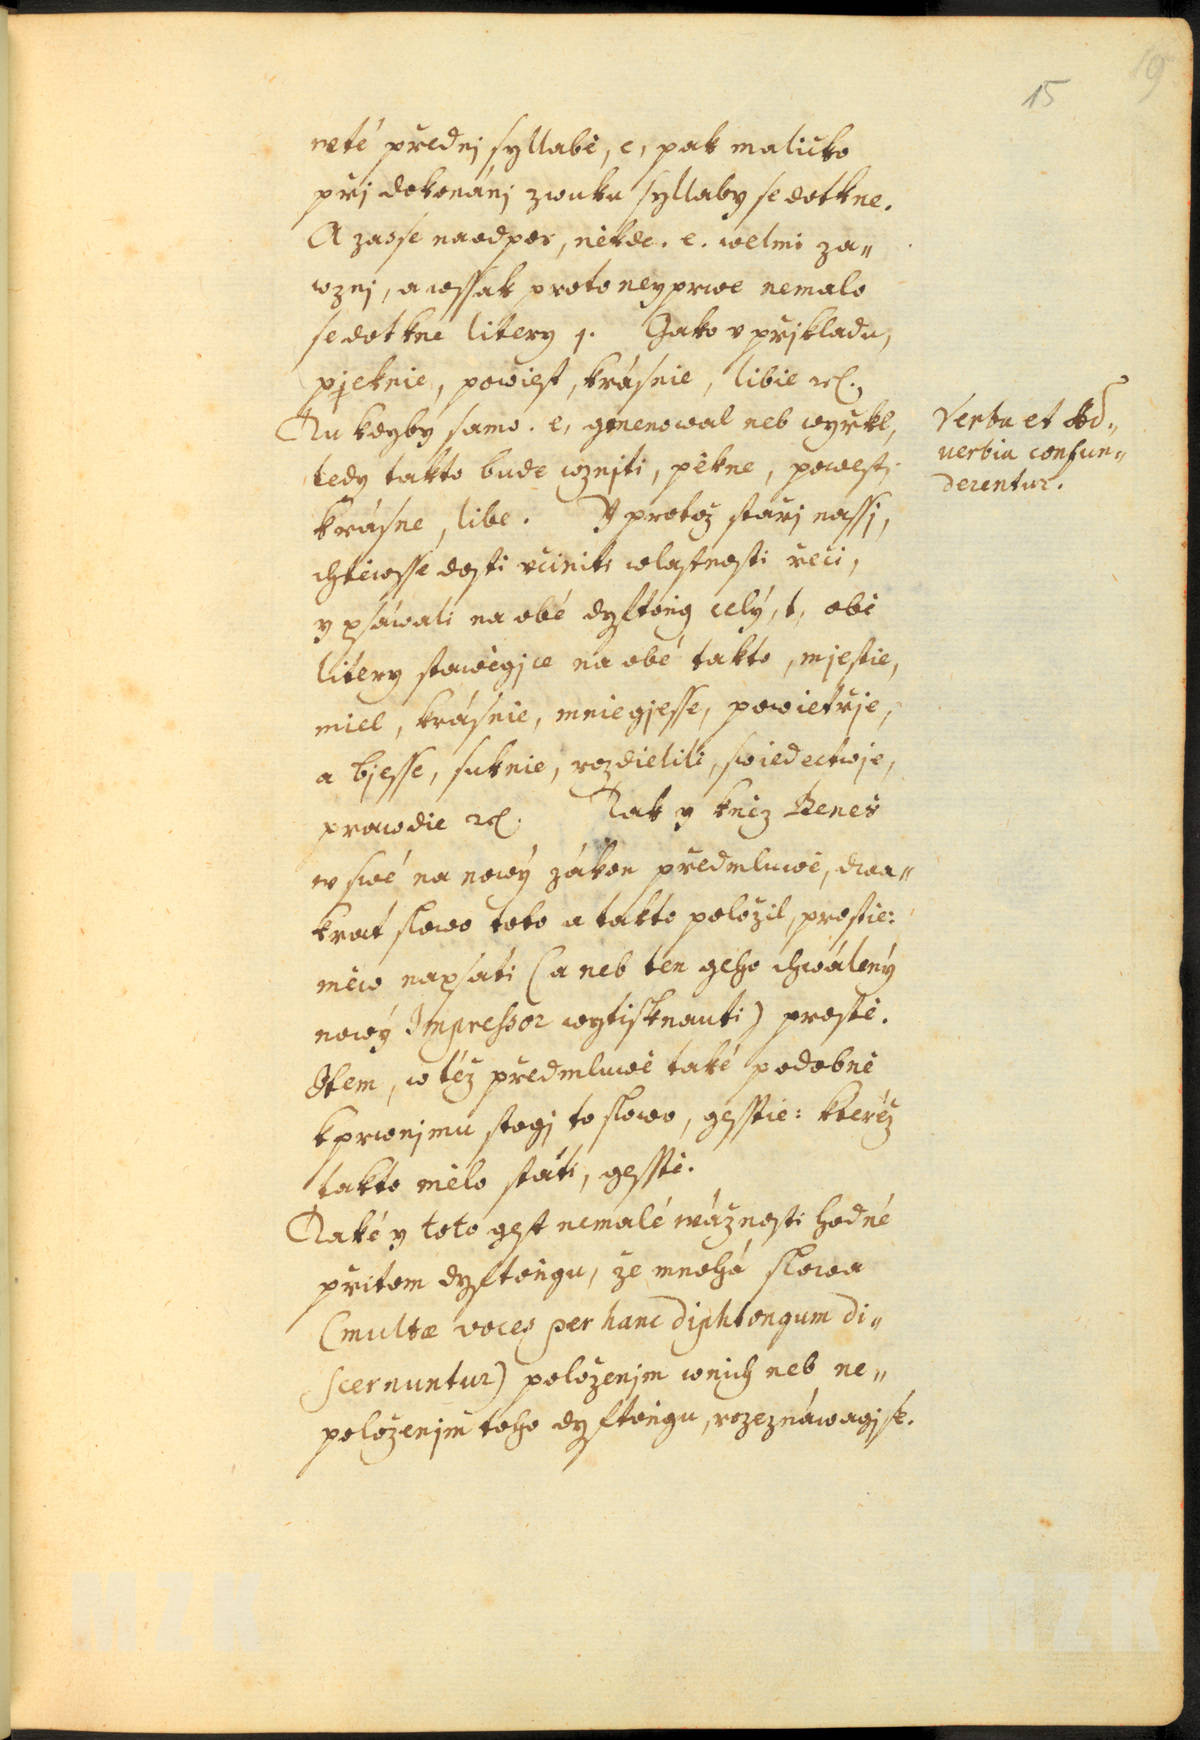 15
19
w té přednj syllabě, e, pak maličko
při dokonánj zwuku syllaby se dotkne.
A zasse naodpor, někde. e. welmi za„
wznj, a wssak proto neyprwe nemalo
se dotkne litery j. Jako v přjkladu,
pjeknie, powiest, krásnie, libie rč.,
Tu kdyby samo. e, gmenowal neb wyřkl,
tedy takto bude wznjti, pěkne, powest,
krásne, libe. Y protož stařj nassj,
chtěwsse dosti včiniti wlastnosti řeči,
y psáwali na obé dyftong celý, t, obě
litery stawěgjce na obé takto, mjestie,
miel, krásnie, mniegjesse, powietřje,
a bjesse, suknie, rozdielili, swiedectwje,
prawdie rč. Tak y kněz Beneš
w swé na nowý zákon předmluwě, dwa„
krat slowo toto a takto položil, prostie:
měw napsati (a neb ten geho chwálený
nowý Impressor wytisknauti) prostě.
Item, w též předmluwě také podobně
k prwnjmu stogj to slowo, gesstie: kteréž
takto mělo státi, gesstě.
Také y toto gest nemalé wážnosti hodné
při tom dyftongu, že mnohá slowa
(multæ voces per hanc diphtongum di„
scernuntur) položenjm w nich neb ne„
položenjm toho dyftongu, rozeznáwagj se.
Verba et Ad„
uerbia confun„
derentur.
MZK
MZK